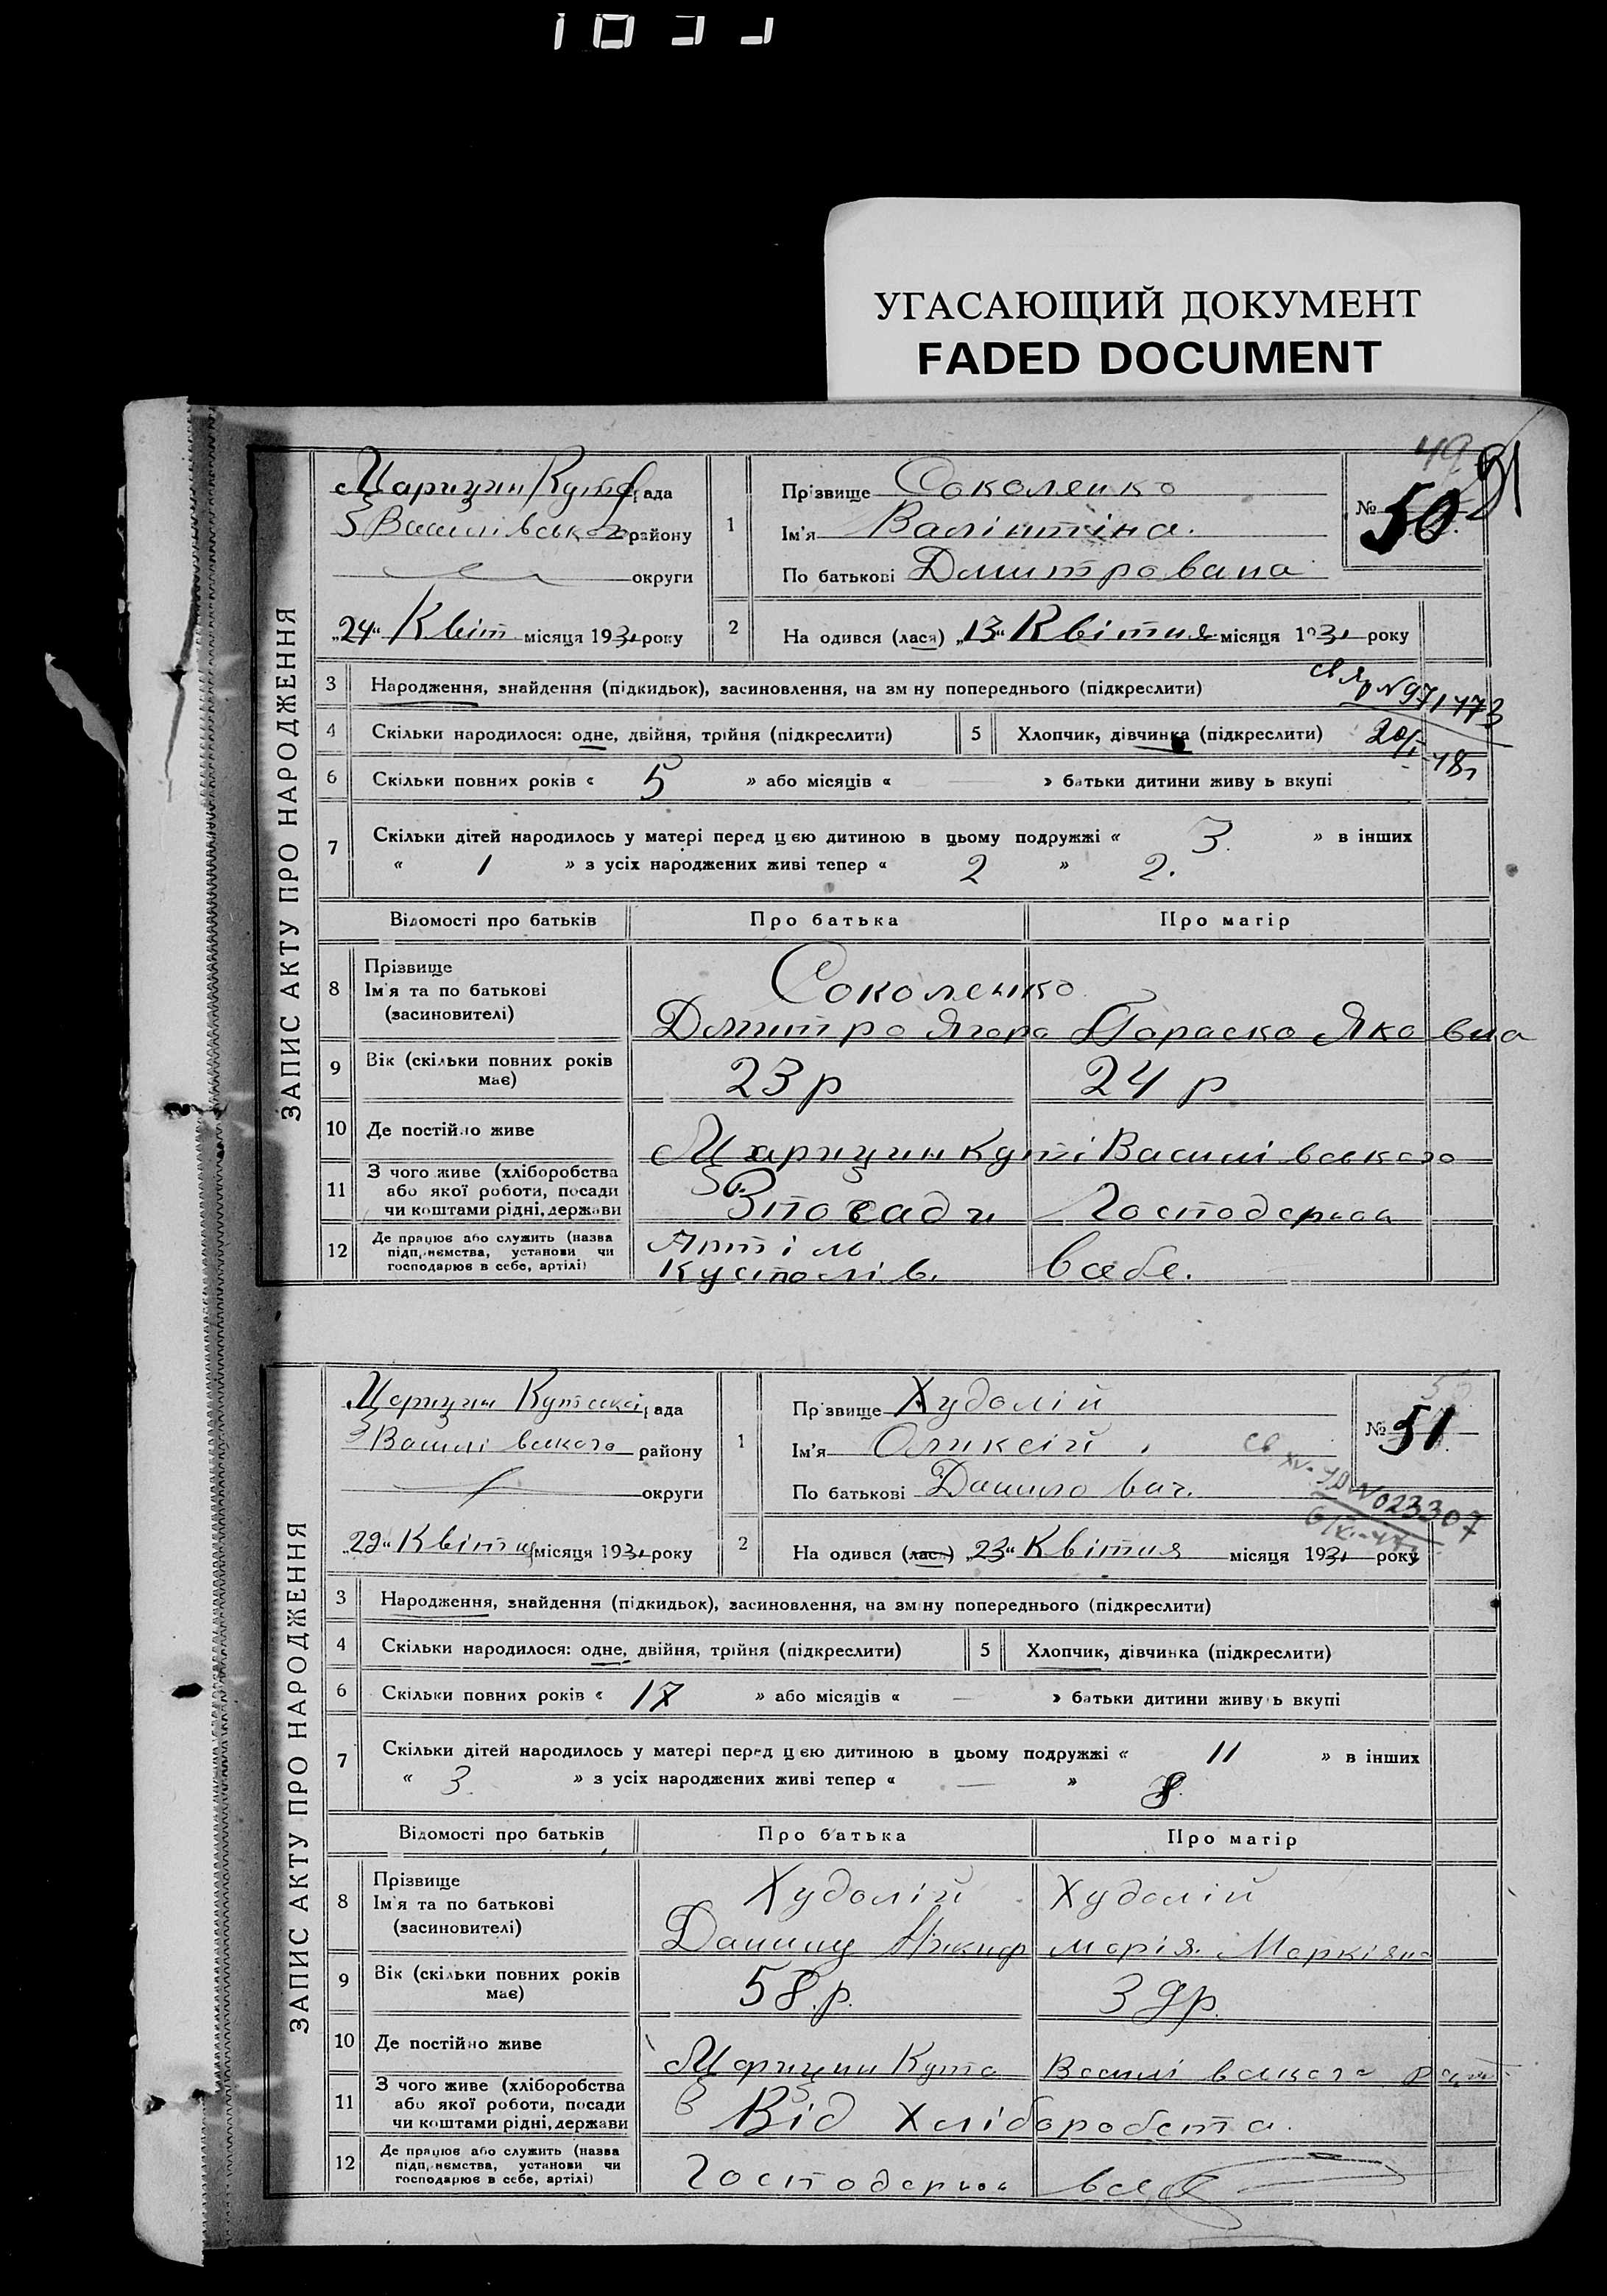 УГАСАЮЩИЙ ДОКУМЕНТ
FADED DOCUMENT
49
91
ЗАПИС АКТУ ПРО НАРОДЖЕННЯ
Царицин Кутс рада
Василівського району
округи
„24“ Квіт місяця 1931 року
1
Прізвище Соколенко
Ім'я Валінтіна.
По батькові Дмитрована
№ 50
2
На одився (лася) „13“ Квітня місяця 1931 року
3 Народження, знайдення (підкидьок), засиновлення, на зм ну попереднього (підкреслити)
№ 971473
20/I-48г
4 Скільки народилося: одне, двійня, трійня (підкреслити) 5 Хлопчик, дівчинка (підкреслити)
6 Скільки повних років « 5 » або місяців « — » батьки дитини живу ь вкупі
7 Скільки дітей народилось у матері перед цею дитиною в цьому подружжі « 3. » в інших
« 1 » з усіх народжених живі тепер « 2 » 2.
Відомості про батьків Про батька Про матір
8 Прізвище
Ім'я та по батькові
(засновителі)
Соколенко
Дмитро Ягоро Параска Яковна
9 Вік (скільки повних років має) 23 р 24 р
10 Де постійно живе Царицин Куті Василівського
11 З чого живе (хліборобства
або якої роботи, посади
чи коштами рідні, держави
Зпосади Господарюй
12 Де працює або служить (назва
підприємства, установи чи
господарює в себе, артілі)
Артіль
Кустпслів. всебе.
ЗАПИС АКТУ ПРО НАРОДЖЕННЯ
Царицин Кутской рада
Василівського району
округи
„29“ Квітня місяця 1931 року
1
Прізвище Худолій
Ім'я Оликсій.
По батькові Данилович.
№ 51
№ 023307
2
На одився (лася) „23“ Квітня місяця 1931 року
3 Народження, знайдення (підкидьок), засиновлення, на зм ну попереднього (підкреслити)
4 Скільки народилося: одне, двійня, трійня (підкреслити) 5 Хлопчик, дівчинка (підкреслити)
6 Скільки повних років « 17 » або місяців « — » батьки дитини живу ь вкупі
7 Скільки дітей народилось у матері перед цею дитиною в цьому подружжі « 11 » в інших
« 3. » з усіх народжених живі тепер « — » 8.
Відомості про батьків Про батька Про матір
8 Прізвище
Ім'я та по батькові
(засновителі)
Худолій Худолій
Данилу Никиф Марія. Маркіяна
9 Вік (скільки повних років має) 58.р. 39р.
10 Де постійно живе Царицин Кута Василівського рай
11 З чого живе (хліборобства
або якої роботи, посади
чи коштами рідні, держави
Від Хліборобста.
12 Де працює або служить (назва
підприємства, установи чи
господарює в себе, артілі)
Господарює всебе